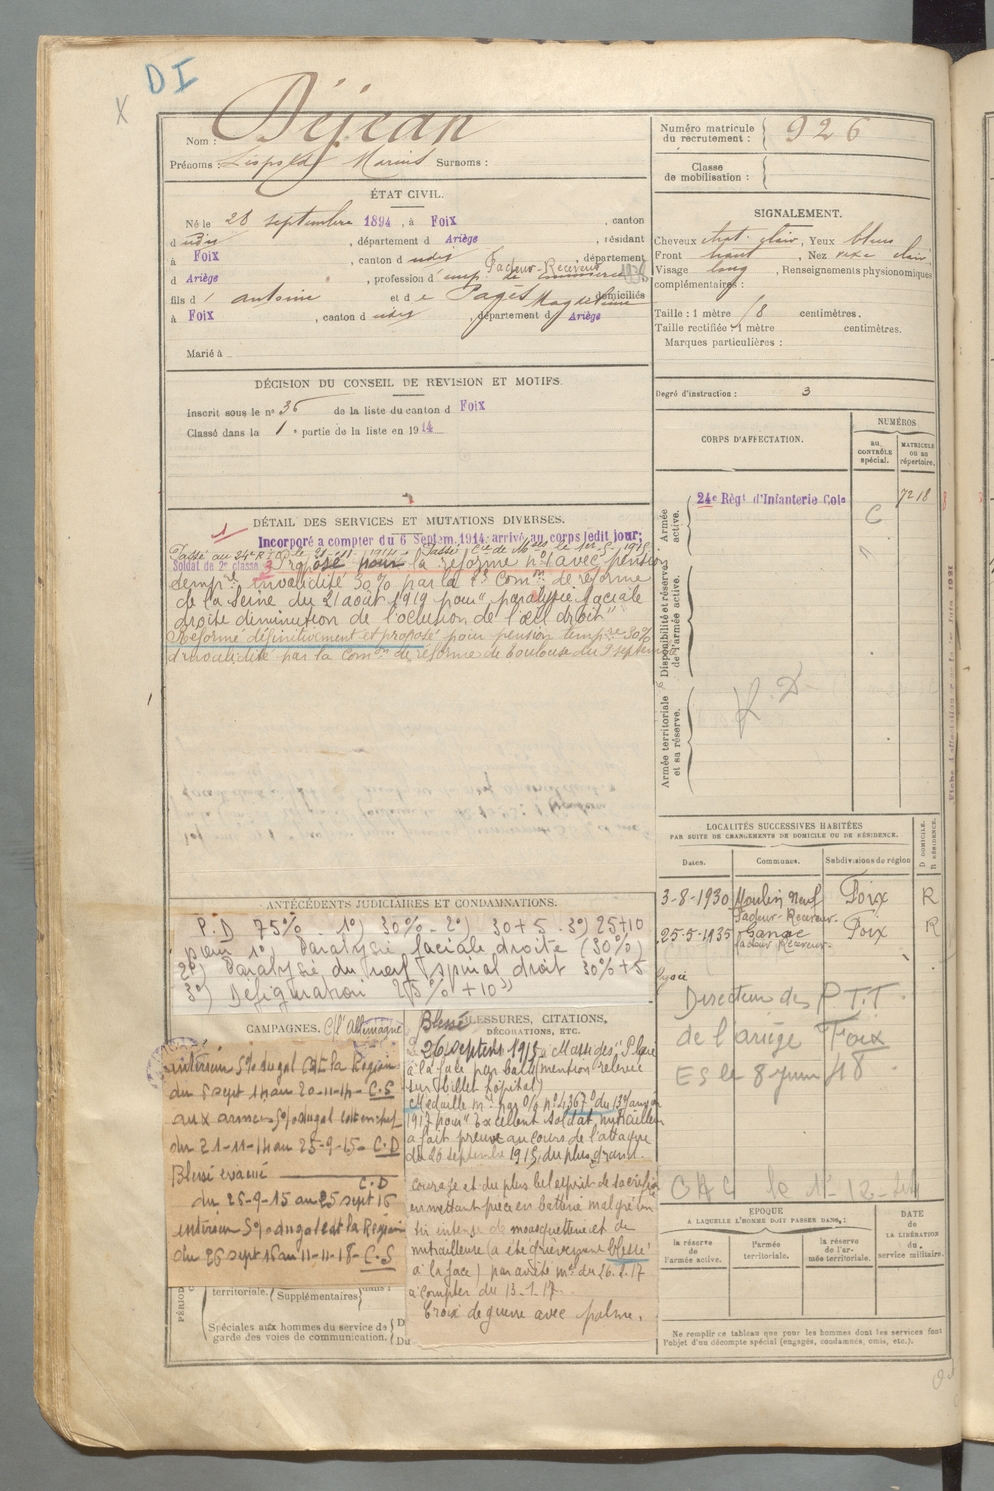 DI
X
Nom : Déjean
Prénoms : Léopold Marius Surnoms :
Numéro matricule du recrutement : 926
Classe de mobilisation :
ÉTAT CIVIL.
Né le 28 septembre 1894, à Foix, canton
d udis, département d Ariège, résidant
à Foix, canton d udis, département
d Ariège, profession d' emp. de commerce Facteur-Receveur
fils d' antoine et de Pagès Magdeleine domiciliés
à Foix, canton d udis, département d Ariège
Marié à
SIGNALEMENT.
Cheveux chat. clair, Yeux bleus
Front haut, Nez
Visage long, Renseignements physionomiques
complémentaires :
Taille : 1 mètre 78 centimètres.
Taille rectifiée : 1 mètre centimètres.
Marques particulières :
Degré d'instruction : 3
DÉCISION DU CONSEIL DE REVISION ET MOTIFS.
Inscrit sous le n° 36 de la liste du canton d Foix
Classé dans la 1e partie de la liste en 1914
CORPS D'AFFECTATION.
NUMÉROS
AU CONTRÔLE spécial.
MATRICULE OU AU répertoire.
Armée active.
24e Régt d'Infanterie Cole
7218
C
Disponibilité et réserve de l'armée active.
Armée territoriale et sa réserve.
DÉTAIL DES SERVICES ET MUTATIONS DIVERSES.
1
Incorporé a compter du 6 Septem. 1914, arrivé au corps ledit jour;
Soldat de 2e classe
Passé au 24e R.I.C. le 21-11-1914. Passé Cie de Mses le 1er-5-1915
Proposé pour la réforme n°1 avec pension
tempre, invalidité 30% par la 2e Comm. de réforme
de la Seine du 21 août 1919 pour "paralysie faciale
droite diminution de l'occlusion de l'œil droit"
Réformé définitivement et proposé pour pension tempre 30%
d'invalidité par la Comon de réforme de Toulouse du 9 septem
LOCALITÉS SUCCESSIVES HABITÉES
PAR SUITE DE CHANGEMENTS DE DOMICILE OU DE RÉSIDENCE.
Dates.
Communes.
Subdivisions de région
D DOMICILE. R RÉSIDENCE.
3-8-1930 Moulin Neuf Foix R
Facteur-Receveur.
25-5-1935 Ganac Foix R
facteur Receveur.
Directeur des P.T.T
de l'ariège Foix
ES le 8 juin 48
ANTÉCÉDENTS JUDICIAIRES ET CONDAMNATIONS.
P.D 75% - 1°) 30% - 2°) 30+5 - 3°) 25+10
pour 1°) Paralysie faciale droite (30%)
2°) Paralysie du nerf spinal droit 30%+5
3°) Défiguration 25% +10 »
CAMPAGNES. C/l'Allemagne
intérieur
du 6 sept 14 au 20-11-14 - C.S
aux armées
du 21-11-14 au 25-9-15 - C.D
Blessé évacué C.D
du 25-9-15 au 25 sept 16
intérieur
du 26 sept 16 au 11-11-18 - C.S
PÉRIOD
territoriale. (Supplémentaires) dans :
Spéciales aux hommes du service de garde des voies de communication. D
Du
BLESSURES, CITATIONS, DÉCORATIONS, ETC.
Blessé
le 26 septem 1915 à Massiges "Plaie
à la face par balle (mention relevée
sur billet hôpital)
Médaille mre par O/o n° 4367 D du 13 janvier
1917 pour "Excellent soldat mitrailleur
a fait preuve au cours de l'attaque
du 26 septembre 1915, du plus grand
courage et du plus bel esprit de sacrifice
en mettant pièce en batterie malgré un
tir intense de mousqueterie et de
mitrailleuse (a été grièvement blessé
à la face) par arrêté mel du 26.2.17
à compter du 13-1-17.
Croix de guerre avec palme.
le 1-12-
EPOQUE
A LAQUELLE L'HOMME DOIT PASSER DANS :
la réserve de l'armée active.
l'armée territoriale.
la réserve de l'armée territoriale.
DATE de LA LIBÉRATION du service militaire.
Ne remplir ce tableau que pour les hommes dont les services font l'objet d'un décompte spécial (engagés, condamnés, omis, etc.).